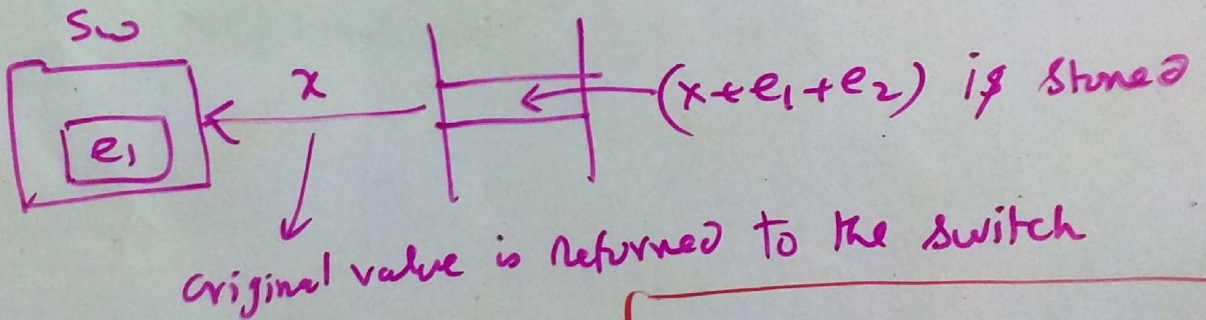 SW
x
(x+e₁+e₂) is stored
e₁
original value is returned to the switch